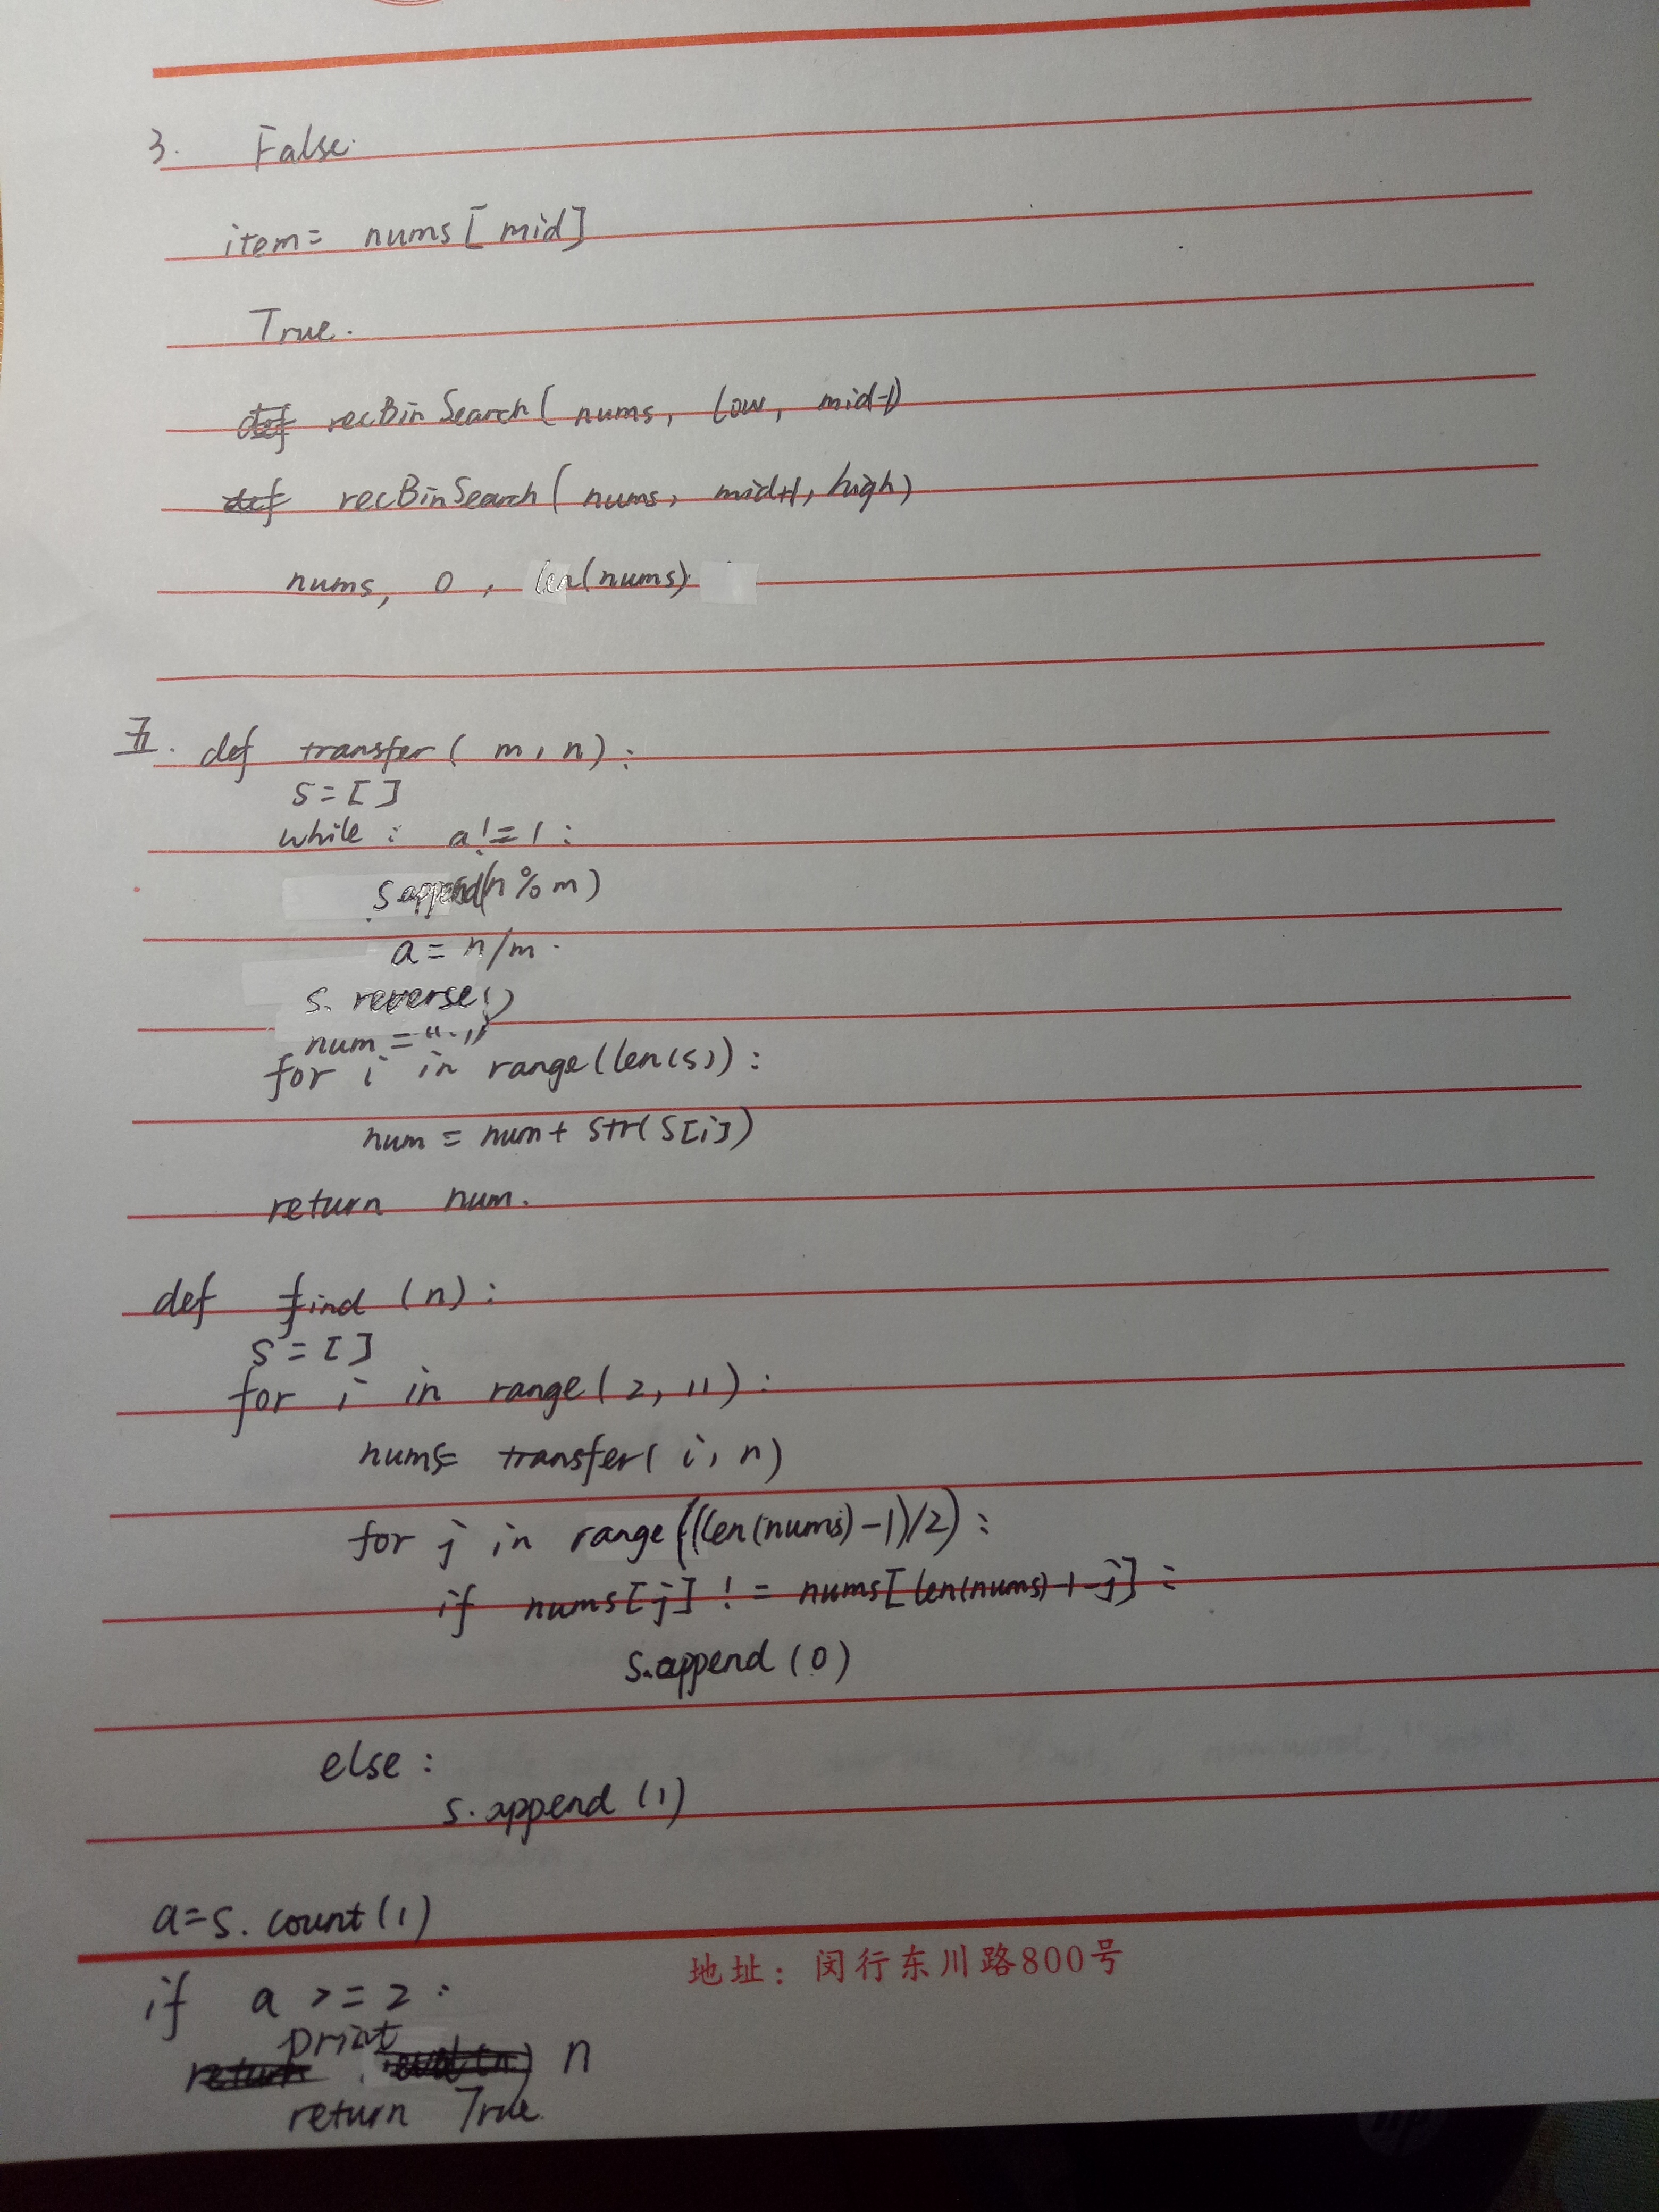 3. False.
item= nums[mid]
True.
recBinSearch( nums, low, mid-1)
recBinSearch( nums, mid+1, high)
nums, 0, len(nums)
五. def transfer( m, n):
s=[]
while: a!=1:
s append(n%m)
a= n/m.
s. reverse()
num = "."
for i in range(len(s)):
num = num+ str(s[i])
return num.
def find (n):
s=[]
for i in range(2, 11):
nums= transfer( i, n)
for j in range((len(nums)-1)/2):
if nums[j] != nums[len(nums)-1-j]:
s.append(0)
else:
s.append(1)
a=s.count(1)
地址：闵行东川路800号
if a >=2:
print n
return True.